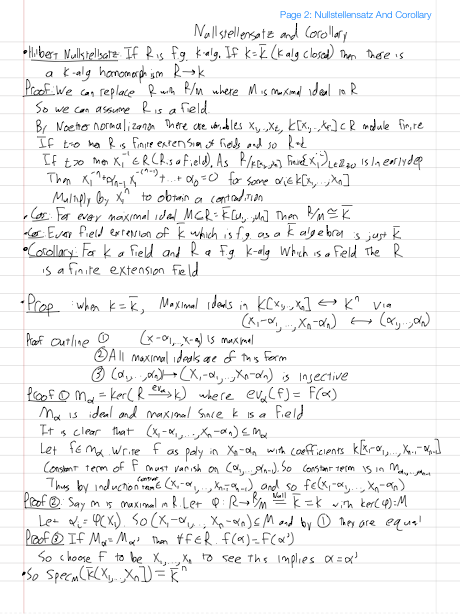 Page 2: Nullstellensatz And Corollary
Nullstellensatz and Corollary
• Hilbert Nullstellsatz: If R is f.g. k-alg. If k = k̄ (k alg closed) then there is
a k-alg homomorphism R→k
Proof: We can replace R with R/M where M is maximal ideal in R
So we can assume R is a field
By Noether normalization there are variables x₁,..,x_t, k[x₁,..,x_t] ⊂ R module finite
If t=0 then R is finite extension of fields and so R=k
If t>0 then x₁⁻¹ ∈ R (R is a field). As R/k[x₁,..,x_t] finite {x₁⁻ⁱ}_{i∈ℤ≥0} is linearly dep
Then x₁⁻ⁿ + α_{n-1} x₁^{-(n-1)} + ... + α₀ = 0 for some αᵢ ∈ k[x₁,..,x_t]
Multiply by x₁ⁿ to obtain a contradiction
• Cor: For every maximal ideal M⊂R = k̄[y₁,..,yₙ] Then R/M ≅ k̄
• Cor: Every field extension of k̄ which is f.g. as a k̄ algebra is just k̄
• Corollary: For k a field and R a f.g k-alg which is a field the R
is a finite extension field
• Prop: when k = k̄, Maximal ideals in k[x₁,..,xₙ] ↔ kⁿ via
(x₁-α₁,...,xₙ-αₙ) ↔ (α₁,..,αₙ)
Proof outline ① (x-α₁,..,x-αₙ) is maximal
② All maximal ideals are of this form
③ (α₁,..,αₙ) ↦ (x₁-α₁,...,xₙ-αₙ) is injective
Proof ① m_α = ker(R →^{ev_α} k) where ev_α(f) = f(α)
m_α is ideal and maximal since k is a field
It is clear that (x₁-α₁,...,xₙ-αₙ) ⊆ m_α
Let f∈m_α. Write f as poly in xₙ-αₙ with coefficients k[x₁-α₁,..,x_{n-1}-α_{n-1}]
Constant term of f must vanish on (α₁,..,α_{n-1}). So constant term is in m_{α₁,..,α_{n-1}}
Thus by induction const term ∈ (x₁-α₁,..,x_{n-1}-α_{n-1}) and so f∈(x₁-α₁,..,xₙ-αₙ)
Proof ②: Say m is maximal in R. Let φ: R→R/m ≅^{Null} k̄ = k with ker(φ)=M
Let αᵢ = φ(xᵢ). So (x₁-α₁,..,xₙ-αₙ) ⊆ M and by ① they are equal
Proof ③ If M_α = M_α' then ∀f∈R. f(α)=f(α')
So choose f to be x₁,..,xₙ to see this implies α=α'
• So Specm(k̄[x₁,..,xₙ]) = k̄ⁿ